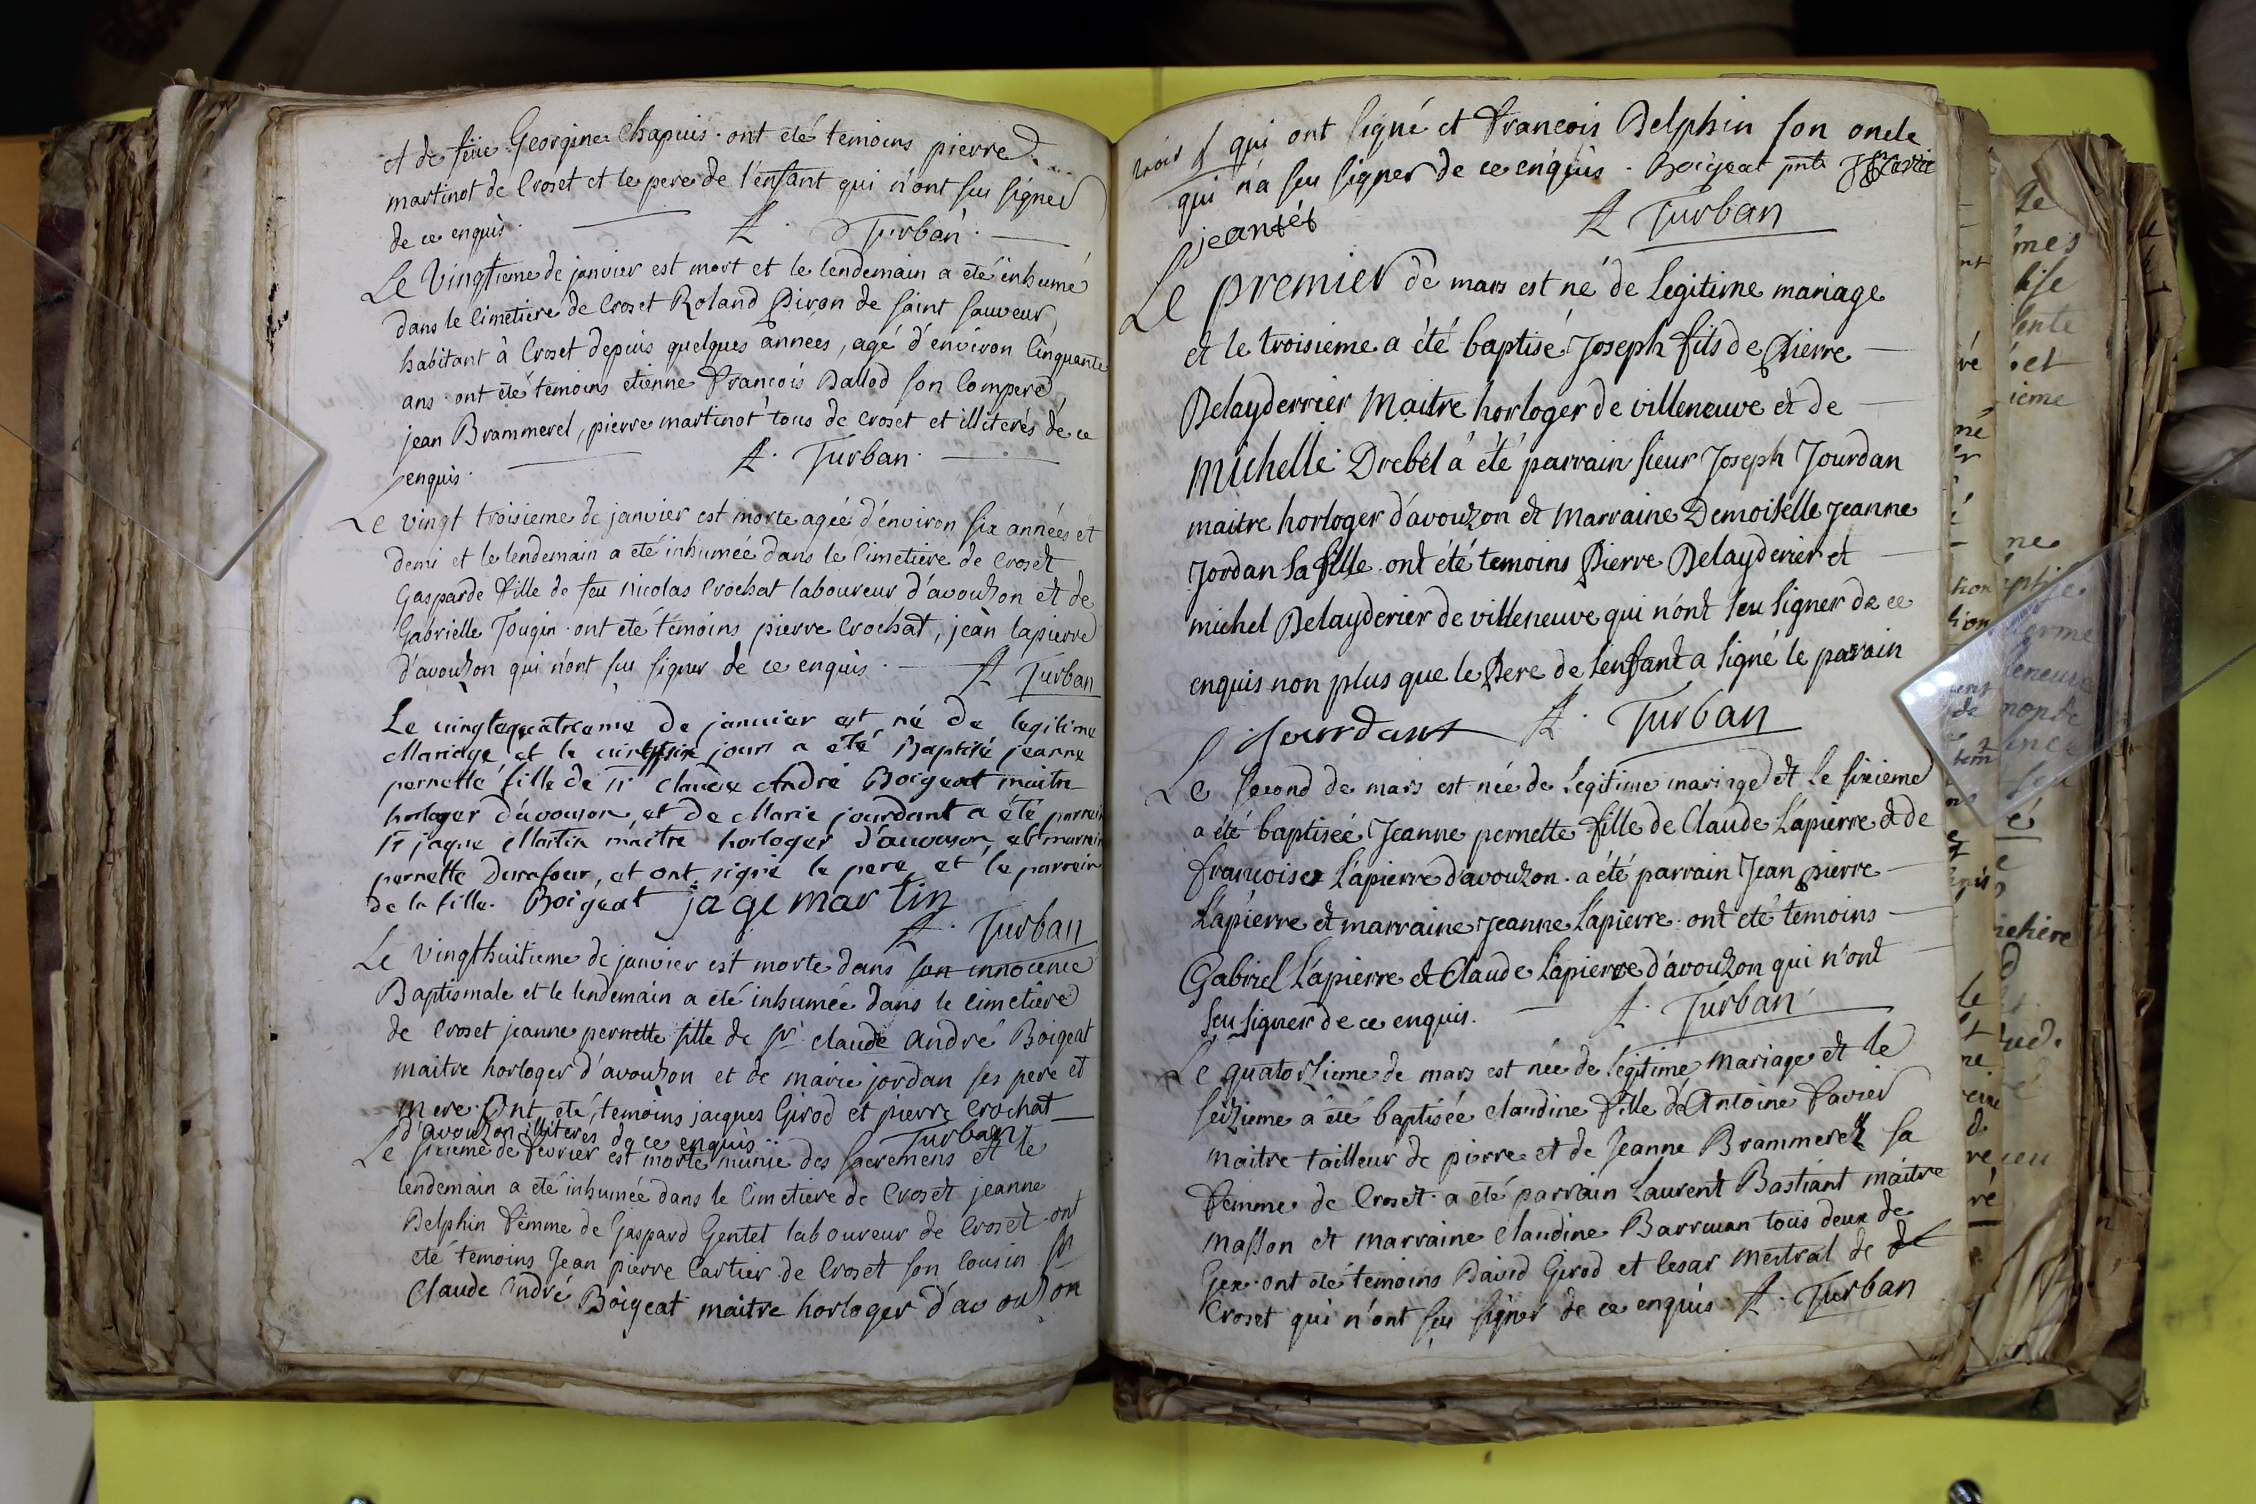 et de feüe Georgine Chapuis. ont eté temoins pierre
martinot de Croset et le pere de l'enfant qui n'ont seu signer
de ce enquis. A. Turban.
Le Vingtieme de janvier est mort et le lendemain a eté inhumé
dans le Cimetiere de Croset Roland Piron de saint sauveur,
habitant à Croset depuis quelques années, agé d'environ Cinquante
ans. ont eté temoins etienne françois Ballod son Compere,
jean Brammerel, pierre martinot tous de Croset et illiterés de ce
enquis. A. Turban.
Le vingt troisieme de janvier est morte agée d'environ six années et
demi et le lendemain a eté inhumée dans le Cimetiere de Croset
Gasparde fille de feu nicolas Crochat laboureur d'avouzon et de
Gabrielle Tougin. ont eté temoins pierre Crochat, jean lapierre
d'avouzon qui n'ont seu signer de ce enquis. A Turban
Le vingtequatrieme De janvier est né De legitime
Mariage, et le vintsix jour a été Baptisé jeanne
pernette fille de sr claude André Boigeat maitre
horloger d'avouson, et De Marie jourdant a été parrain
sr jaque Martin maitre horloger D'auouson, et marrein
pernette Durafour, et ont signé le pere et le parrein
de la fille. Boigeat jaqe martin
A. Turban
Le vingthuitieme de janvier est morte dans son innocence
Baptismale et le lendemain a eté inhumée dans le cimetiere
de Croset jeanne pernette fille de sr. claude andré Boigeat
maitre horloger d'avouzon et de marie jordan ses pere et
mere. Ont eté temoins jacques Girod et pierre Crochat
d'avouzon illiteres de ce enquis Turban
Le sixieme de fevrier est morte munie des sacremens et le
lendemain a eté inhumée dans le Cimetiere de Croset jeanne
Delphin femme de Gaspard Gentet laboureur de Croset. ont
eté temoins Jean pierre Cartier de Croset son cousin sr
Claude André Boigeat maitre horloger d'avouzon
qui ont signé et francois Delphin son oncle
qui n'a seu signer de ce enquis. Boigeat
A Turban
Le premier de mars est né de legitime mariage
et le troisieme a été baptisé Joseph fils de Pierre
Delayderrier Maitre horloger de villeneuve et de
Michelle Drebet a été parrain sieur Joseph Jourdan
maitre horloger d'avouzon et Marraine Demoiselle Jeanne
Jordan sa fille. ont été temoins Pierre Delayderier et
michel Delayderier de villeneuve qui n'ont seu signer de ce
enquis non plus que le Pere de l'enfant a signé le parain
Jourdant A. Turban
Le second de mars est née de Legitime mariage et le sixieme
a été baptiseé Jeanne pernette fille de Claude Lapierre et de
francoise Lapierre d'avouzon. a été parrain Jean pierre
Lapierre et marraine Jeanne Lapierre. ont eté temoins
Gabriel Lapierre et Claude Lapierre d'avouzon qui n'ont
seu signer de ce enquis. A. Turban
Le quatorzieme de mars est née de legitime mariage et le
seizieme a été baptisée claudine fille d'Antoine Favier
maitre tailleur de pierre et de Jeanne Brammerel sa
femme de Croset. a eté parrain Laurent Bastiant maitre
masson et marraine Claudine Barruan tous deux de
Gex. ont eté temoins David Girod et Cesar mestral de
Croset qui n'ont seu signer de ce enquis. A. Turban